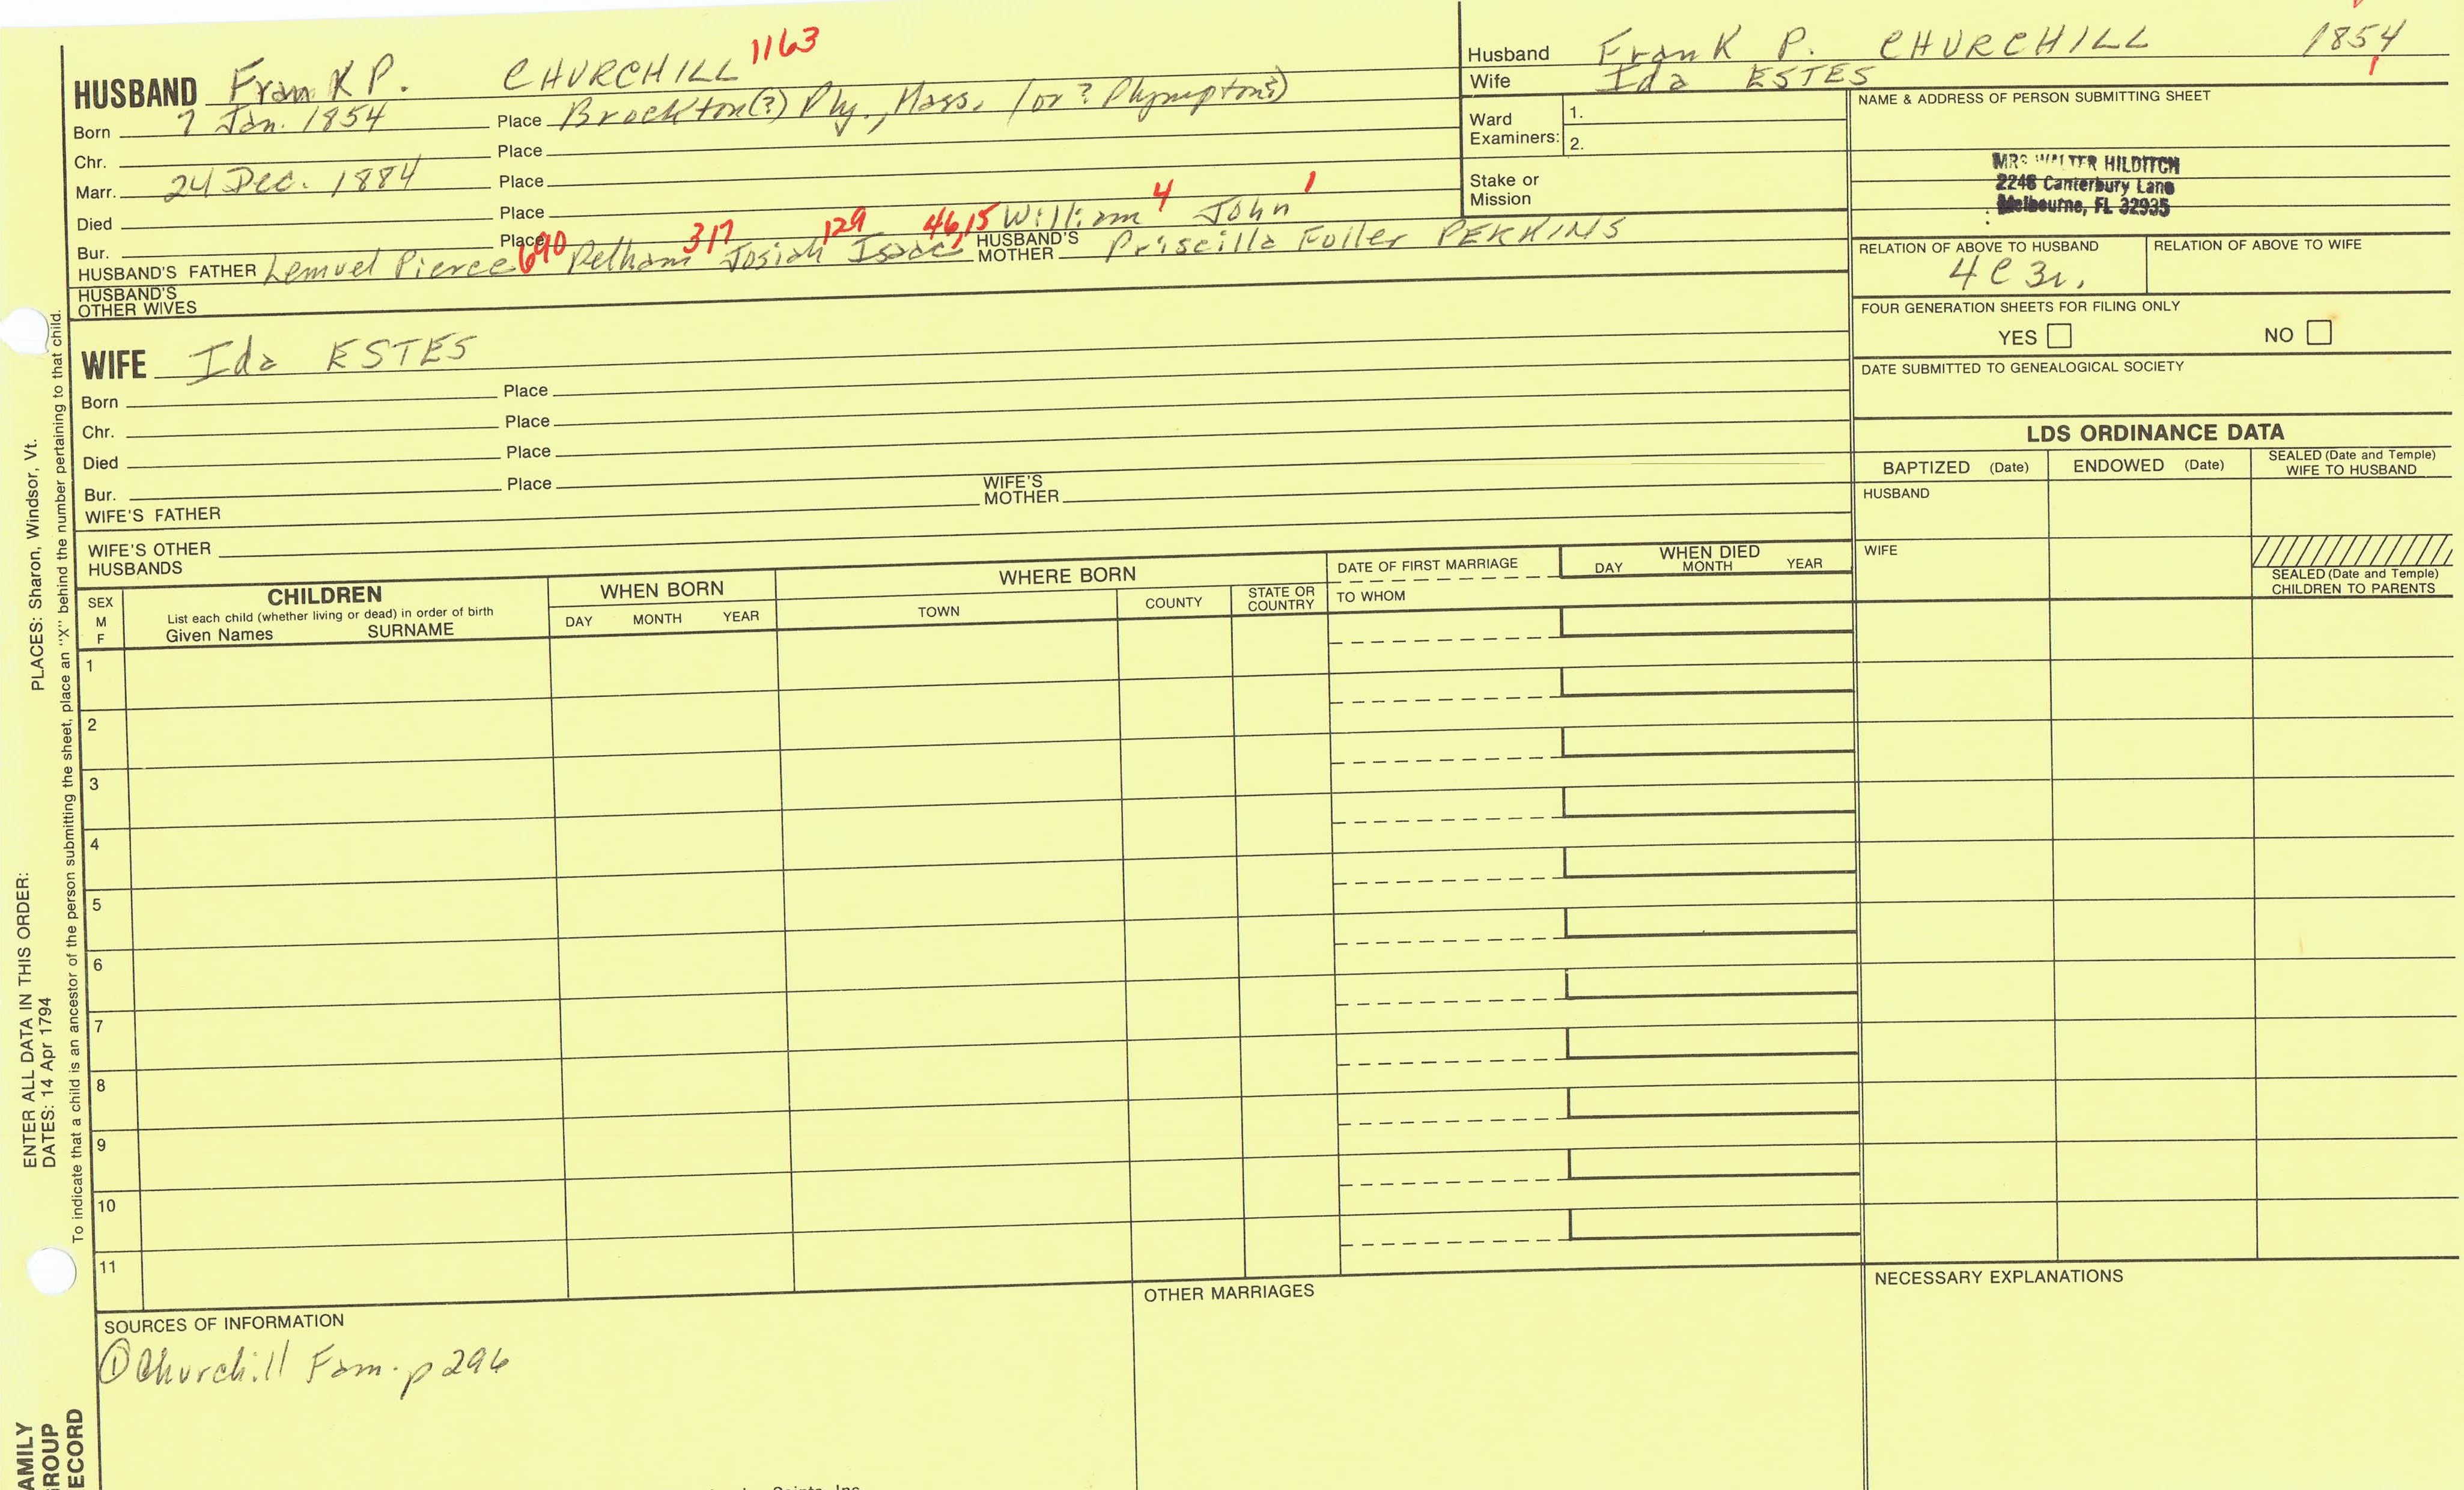 HUSBAND Frank P. CHURCHILL 1163
Born 7 Jan. 1854 Place Brockton(?) Ply., Mass. (or ? Plympton?)
Chr. Place
Marr. 24 Dec. 1884 Place
Died Place
Bur. Place
HUSBAND'S FATHER Lemuel Pierce 690 Pelham 317 Josiah 129 Isaac 46,15 William 4 John 1 HUSBAND'S MOTHER Priscilla Fuller PERKINS
HUSBAND'S OTHER WIVES
WIFE Ida ESTES
Born Place
Chr. Place
Died Place
Bur. Place
WIFE'S FATHER WIFE'S MOTHER
WIFE'S OTHER HUSBANDS
Husband Frank P. CHURCHILL 1854
Wife Ida ESTES 1
Ward Examiners: 1.
2.
Stake or Mission
NAME & ADDRESS OF PERSON SUBMITTING SHEET
MRS WALTER HILDITCH
2246 Canterbury Lane
Melbourne, FL 32935
RELATION OF ABOVE TO HUSBAND RELATION OF ABOVE TO WIFE
4 C 3r.
FOUR GENERATION SHEETS FOR FILING ONLY
YES NO
DATE SUBMITTED TO GENEALOGICAL SOCIETY
LDS ORDINANCE DATA
BAPTIZED (Date) ENDOWED (Date) SEALED (Date and Temple) WIFE TO HUSBAND
HUSBAND
WIFE
SEALED (Date and Temple) CHILDREN TO PARENTS
SEX M F
CHILDREN
List each child (whether living or dead) in order of birth
Given Names SURNAME
WHEN BORN
DAY MONTH YEAR
WHERE BORN
TOWN COUNTY STATE OR COUNTRY
DATE OF FIRST MARRIAGE
TO WHOM
WHEN DIED
DAY MONTH YEAR
1
2
3
4
5
6
7
8
9
10
11
SOURCES OF INFORMATION
① Churchill Fam. p 296
OTHER MARRIAGES
NECESSARY EXPLANATIONS
ENTER ALL DATA IN THIS ORDER:
DATES: 14 Apr 1794
PLACES: Sharon, Windsor, Vt.
To indicate that a child is an ancestor of the person submitting the sheet, place an "X" behind the number pertaining to that child.
AMILY
ROUP
ECORD